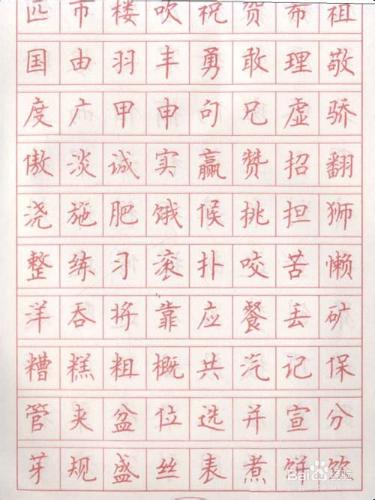 匹市楼吹祝贺布祖
国由羽丰勇敢理敬
度广甲申句兄虚骄
傲淡诚实赢赞招翻
浇施肥饿候挑担狮
整练习滚扑咬苦懒
洋吞将靠应餐丢矿
糟糕粗概共汽记保
管夹盆位选并宣分
芽规盛丝表煮饼